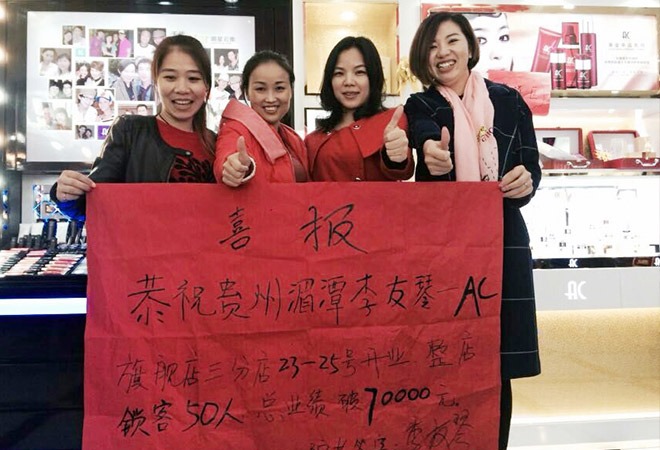 喜报
恭祝贵州湄潭李友琴—AC
旗舰店三分店23-25号开业.整店
锁客50人 总业绩 破70000元。
李友琴
AC
AC